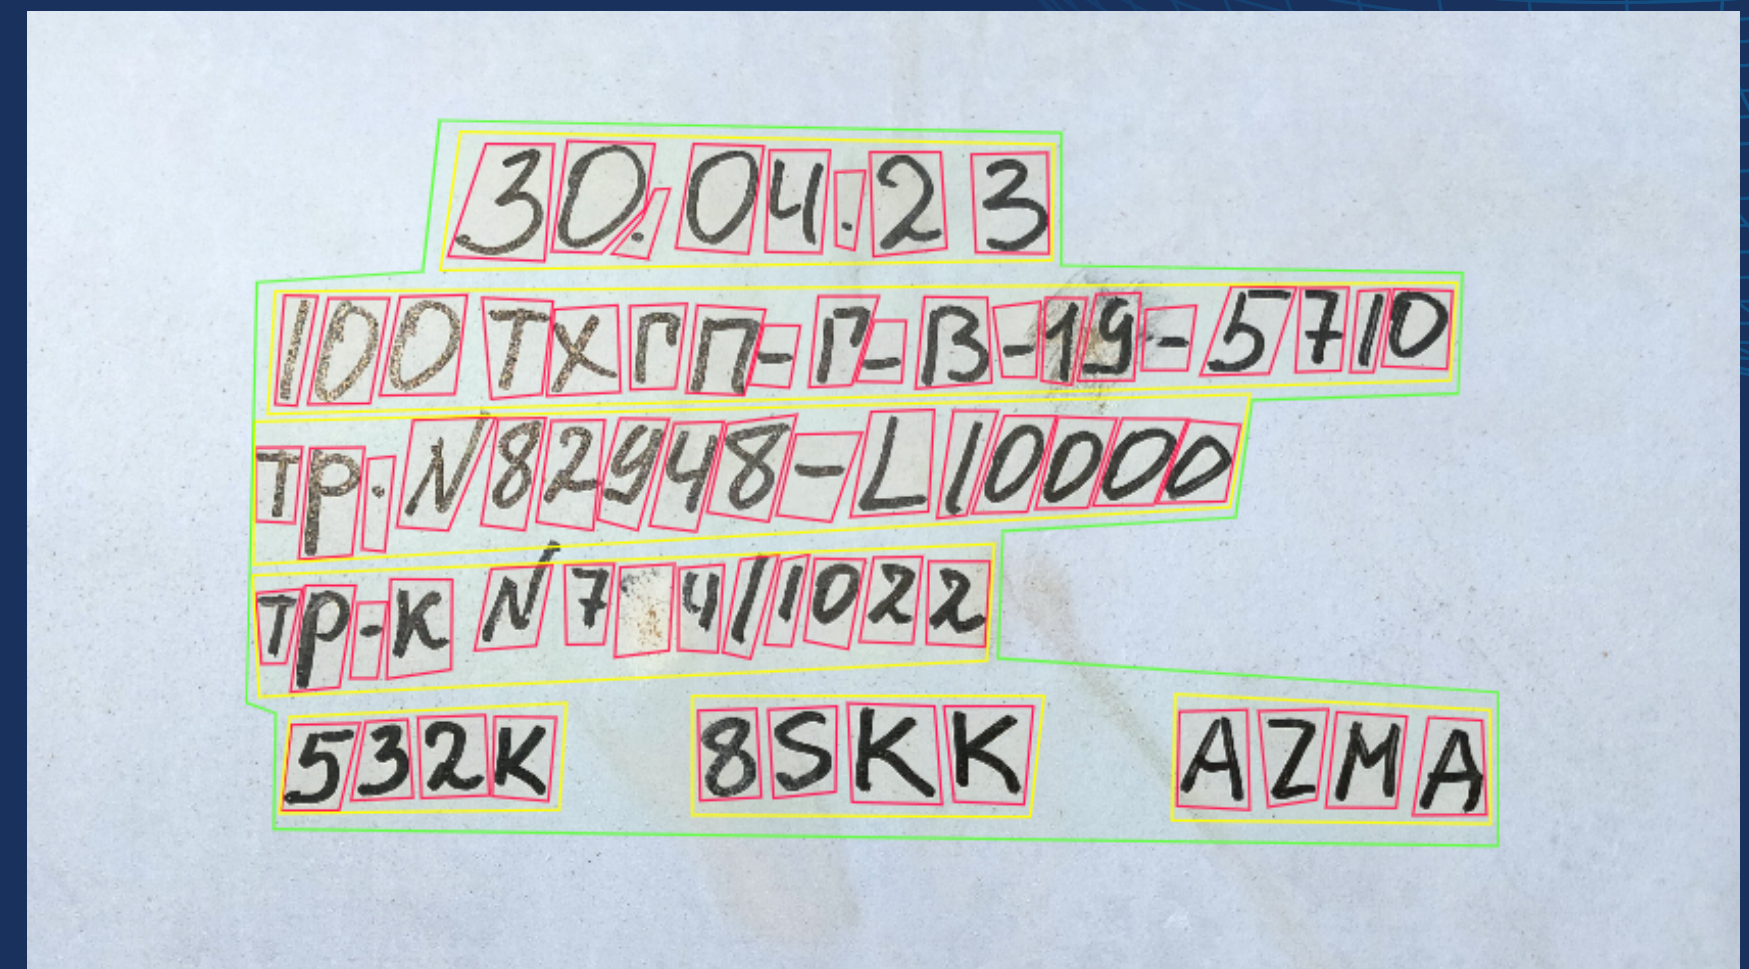 30.04.23
100 ТХГП-Г-В-19-5710
тр. N82948-L10000
тр-к
532K 8SKK AZMA